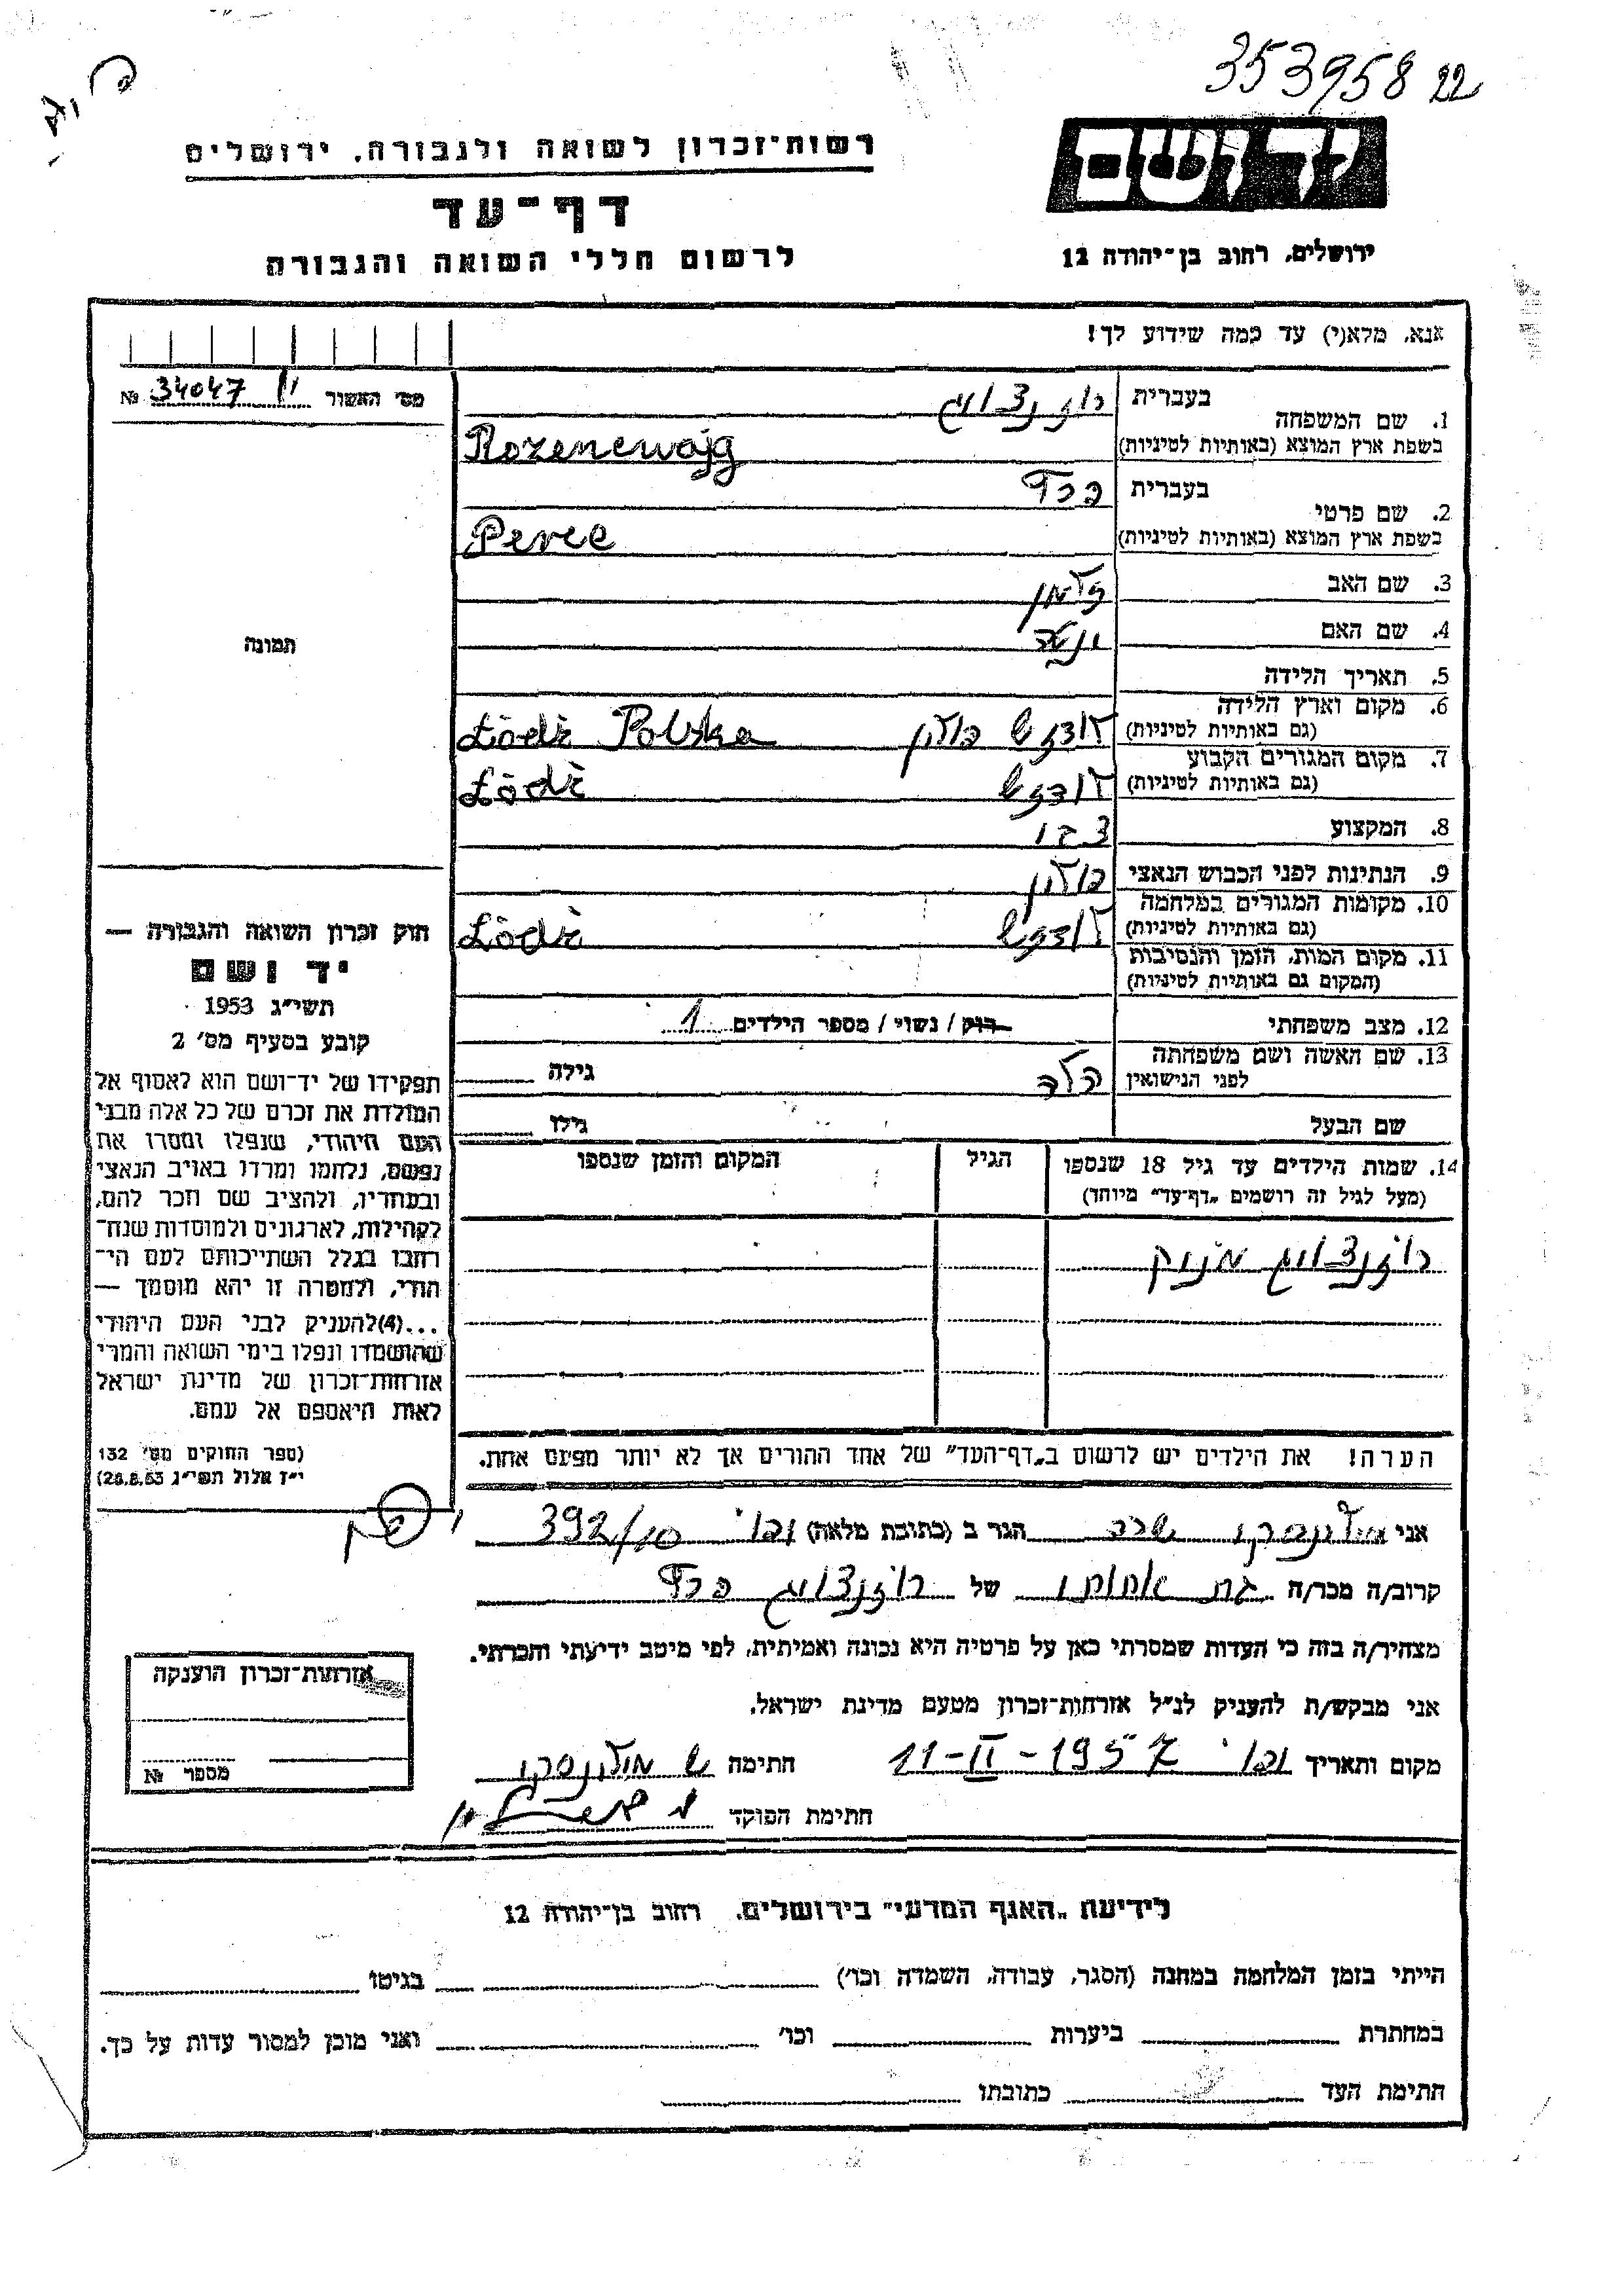 353958 22
רשות־זכרון לשואה ולגבורה, ירושלים
דף־עד
לרשום חללי השואה והגבורה
יד ושם
ירושלים, רחוב בן־יהודה 12
אנא, מלא(י) עד כמה שידוע לך!
מס׳ האשור 34047 №
1. שם המשפחה בעברית רוזנצוויג
בשפת ארץ המוצא (באותיות לטיניות) Rozencwajg
2. שם פרטי בעברית פרץ
בשפת ארץ המוצא (באותיות לטיניות) Perec
3. שם האב זלמן
4. שם האם
5. תאריך הלידה
6. מקום וארץ הלידה (גם באותיות לטיניות) לודז׳ פולין Łódź Polska
7. מקום המגורים הקבוע (גם באותיות לטיניות) לודז׳ Łódź
8. המקצוע
9. הנתינות לפני הכבוש הנאצי פולין
10. מקומות המגורים במלחמה (גם באותיות לטיניות) לודז׳ Łódź
11. מקום המות, הזמן והנסיבות (המקום גם באותיות לטיניות)
12. מצב משפחתי רוק / נשוי / מספר הילדים 1
13. שם האשה ושם משפחתה לפני הנישואין גילה
שם הבעל גילו
14. שמות הילדים עד גיל 18 שנספו (מעל לגיל זה רושמים „דף־עד״ מיוחד) הגיל המקום והזמן שנספו
רוזנצוויג
הערה! את הילדים יש לרשום ב„דף־העד״ של אחד ההורים אך לא יותר מפעם אחת.
תמונה
חוק זכרון השואה והגבורה —
יד ושם
תשי״ג 1953
קובע בסעיף מס׳ 2
תפקידו של יד־ושם הוא לאסוף אל
המולדת את זכרם של כל אלה מבני
העם היהודי, שנפלו ומסרו את
נפשם, נלחמו ומרדו באויב הנאצי
ובעוזריו, ולהציב שם וזכר להם,
לקהילות, לארגונים ולמוסדות שנח־
רבו בגלל השתייכותם לעם הי־
הודי, ולמטרה זו יהא מוסמך —
...(4) להעניק לבני העם היהודי
שהושמדו ונפלו בימי השואה והמרי
אזרחות־זכרון של מדינת ישראל
לאות היאספם אל עמם.
(ספר החוקים מס׳ 132
י״ז אלול תשי״ג 28.8.53)
אני שרה הגר ב (כתובת מלאה) 392/10
קרוב/ה מכר/ה בת אחותו של רוזנצוויג פרץ
מצהיר/ה בזה כי העדות שמסרתי כאן על פרטיה היא נכונה ואמיתית, לפי מיטב ידיעתי והכרתי.
אני מבקש/ת להעניק לנ״ל אזרחות־זכרון מטעם מדינת ישראל.
מקום ותאריך 11-II-1957 חתימה
חתימת הפוקד
אזרחות־זכרון הוענקה
מספר №
לידיעת „האגף המדעי״ בירושלים, רחוב בן־יהודה 12
הייתי בזמן המלחמה במחנה (הסגר, עבודה, השמדה וכו׳) בגיטו
במחתרת ביערות וכו׳ ואני מוכן למסור עדות על כך.
חתימת העד כתובתו